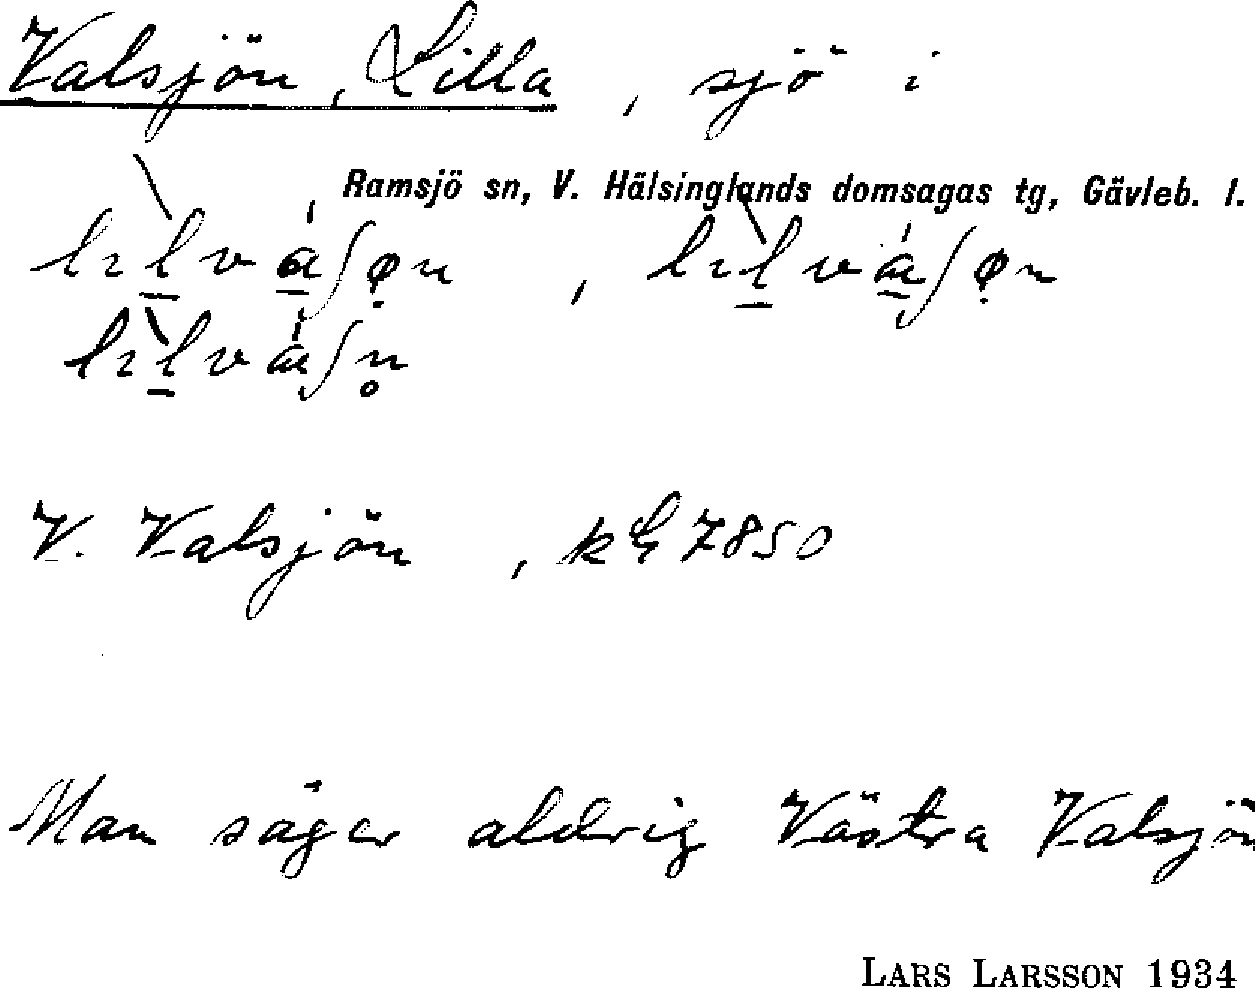 Valsjön, Lilla, sjö i
Ramsjö sn, V. Hälsinglands domsagas tg, Gävleb. l.
V. Valsjön, kG 7850
Man säger aldrig Västra Valsjön
LARS LARSSON 1934